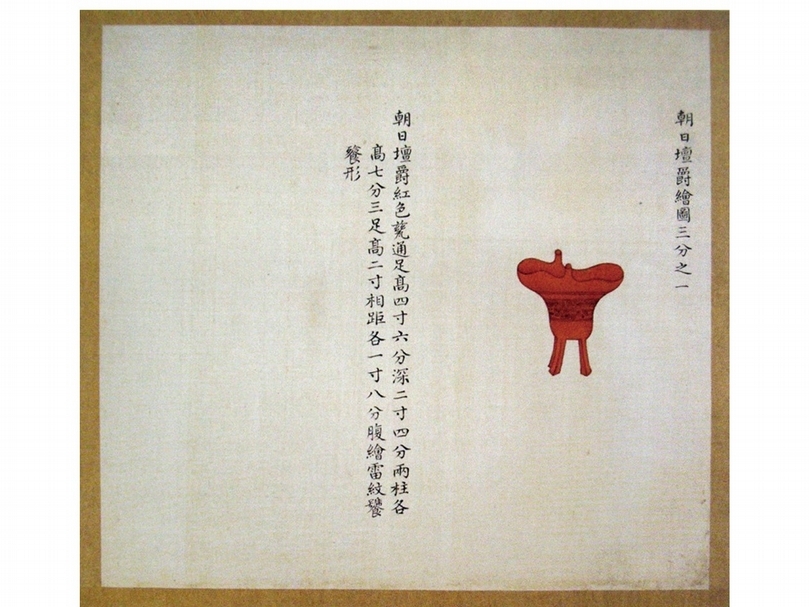 朝日壇爵繪圖三分之一
朝日壇爵紅色甆通足高四寸六分深二寸四分兩柱各
高七分三足高二寸相距各一寸八分腹繪雷紋饕
餮形